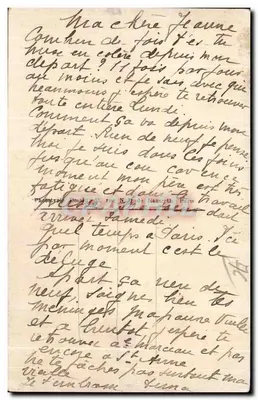 Ma chère Jeanne
Combien de fois t'es tu
mise en colère depuis mon
départ ? 15 fois par jour
au moins et je sais avec que
neanmoins j'espère te retrouver
toute entière lundi.
Comment ça va depuis mon
départ. Rien de neuf je pense,
moi je suis dans les foins
jusqu'au cou car en ce
moment mon père est très
fatigué et dans le travail
arriver samedi
quel temps à Paris. Ici
par moment c'est le
déluge.
Apart ça rien de
neuf. Soignes bien les
méninges ma pauvre vieille
et à bientôt j'espère te
retrouver au morceau et pas
encore à Ste Anne
ne te faches pas surtout ma
vieille
Je t'embrasse